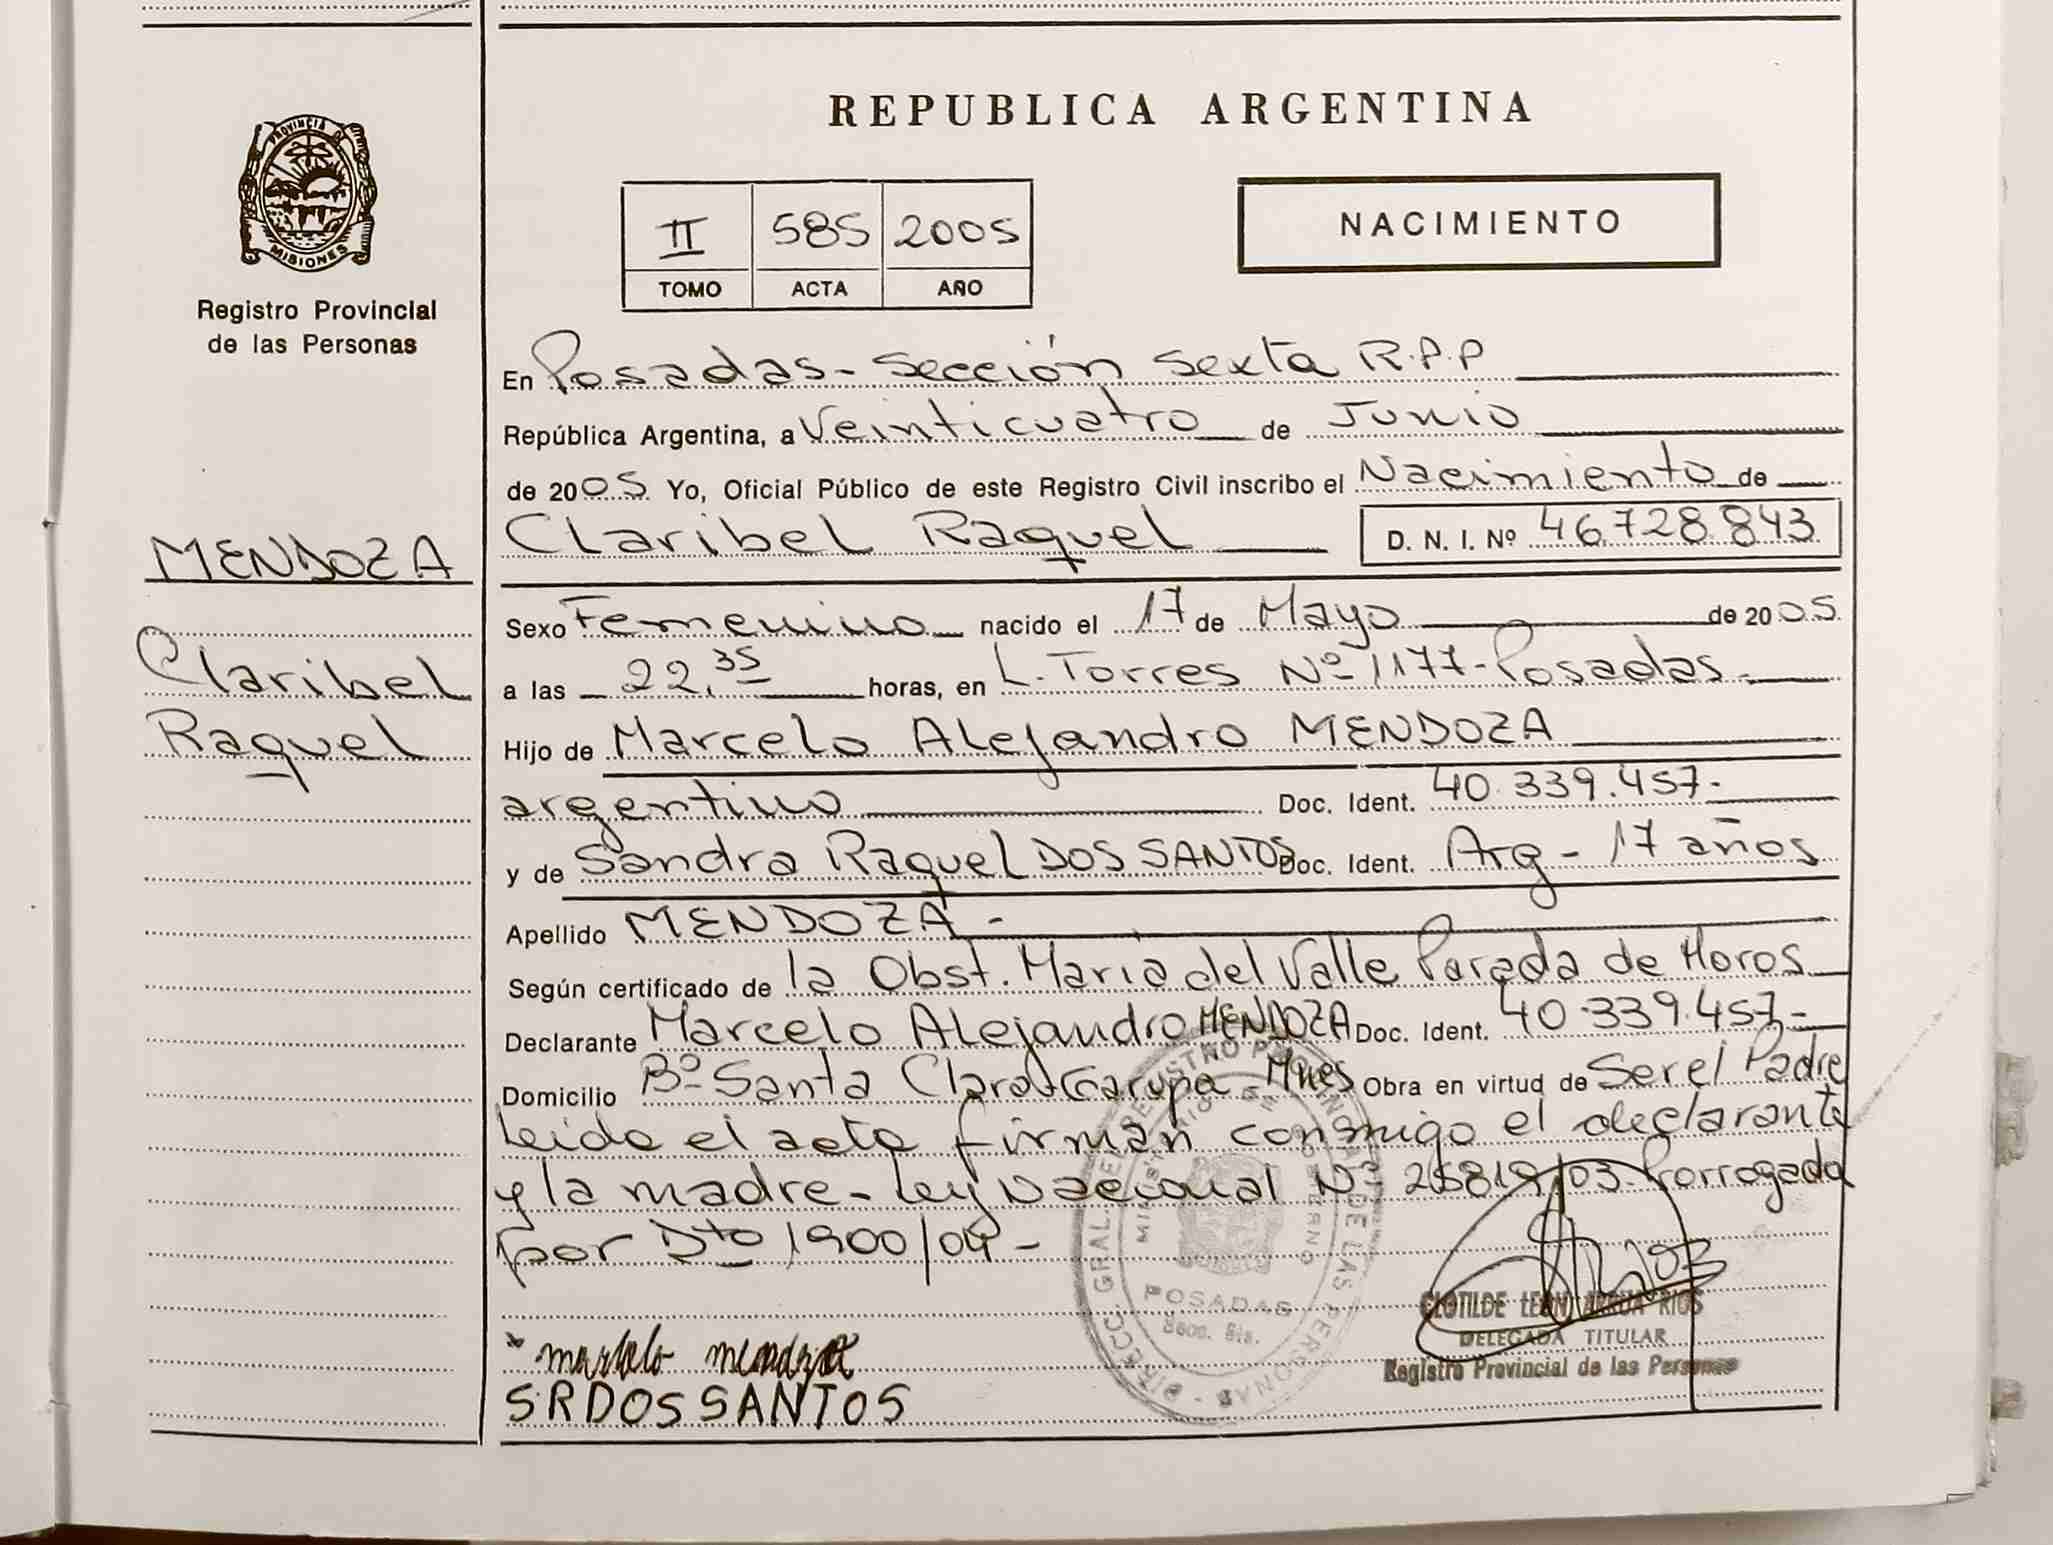 REPUBLICA ARGENTINA
PROVINCIA DE
MISIONES
Registro Provincial
de las Personas
II 585 2005
TOMO ACTA AÑO
NACIMIENTO
En Posadas - Sección Sexta R.P.P
República Argentina, a Veinticuatro de Junio
de 2005 Yo, Oficial Público de este Registro Civil inscribo el Nacimiento de
Claribel Raquel D. N. I. Nº 46.728.843
MENDOZA
Claribel
Raquel
Sexo Femenino nacido el 17 de Mayo de 2005
a las 22.35 horas, en L. Torres Nº 1177 - Posadas -
Hijo de Marcelo Alejandro MENDOZA
argentino Doc. Ident. 40.339.457 -
y de Sandra Raquel DOS SANTOS Doc. Ident. Arg - 17 años
Apellido MENDOZA -
Según certificado de la Obst. Maria del Valle Parada de Moros
Declarante Marcelo Alejandro MENDOZA Doc. Ident. 40.339.457 -
Domicilio Bº Santa Clara - Garupa - Mnes Obra en virtud de Ser el Padre
Leido el acta firman conmigo el declarante
y la madre - Ley Nacional Nº 25819/03. Prorrogada
por Dto 1900/04 -
DIRECC. GRAL. DEL REGISTRO PROVINCIAL DE LAS PERSONAS
MINISTERIO DE GOBIERNO
POSADAS
Secc. 6ta.
CLOTILDE LEON ARRUA RIOS
DELEGADA TITULAR
Registro Provincial de las Personas
marcelo mendoza
SRDOSSANTOS